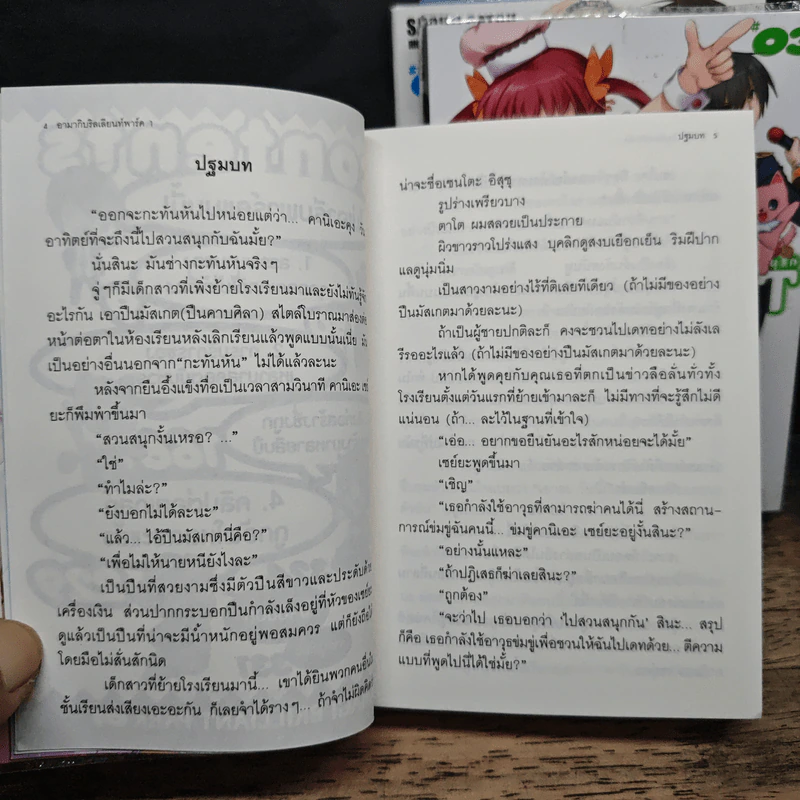 4 อามากิบริลเลียนท์พาร์ค 1
ปฐมบท
“ออกจะกะทันหันไปหน่อยแต่ว่า... คานิเอะคุง วัน
อาทิตย์ที่จะถึงนี้ไปสวนสนุกกับฉันมั้ย?”
นั่นสินะ มันช่างกะทันหันจริงๆ
จู่ๆก็มีเด็กสาวที่เพิ่งย้ายโรงเรียนมาและยังไม่ทันรู้จัก
อะไรกัน เอาปืนมัสเกต(ปืนคาบศิลา) สไตล์โบราณมาส่อง
หน้าต่อตาในห้องเรียนหลังเลิกเรียนแล้วพูดแบบนั้นเนี่ย
เป็นอย่างอื่นนอกจาก“กะทันหัน” ไม่ได้แล้วละนะ
หลังจากยืนอึ้งแข็งทื่อเป็นเวลาสามวินาที คานิเอะ เซย์
ยะก็พึมพำขึ้นมา
“สวนสนุกงั้นเหรอ? ...”
“ใช่”
“ทำไมล่ะ?”
“ยังบอกไม่ได้ละนะ”
“แล้ว... ไอ้ปืนมัสเกตนี่คือ?”
“เพื่อไม่ให้นายหนียังไงละ”
เป็นปืนที่สวยงามซึ่งมีตัวปืนสีขาวและประดับด้วย
เครื่องเงิน ส่วนปากกระบอกปืนกำลังเล็งอยู่ที่หัวของเซย์ยะ
ดูแล้วเป็นปืนที่น่าจะมีน้ำหนักอยู่พอสมควร แต่ก็ยังถือไว้
โดยมือไม่สั่นสักนิด
เด็กสาวที่ย้ายโรงเรียนมานี้... เขาได้ยินพวกคนอื่นใน
ชั้นเรียนส่งเสียงเอะอะกัน ก็เลยจำได้รางๆ... ถ้าจำไม่ผิด
ปฐมบท 5
น่าจะชื่อเซนโตะ อิสุซุ
รูปร่างเพรียวบาง
ตาโต ผมสลวยเป็นประกาย
ผิวขาวราวโปร่งแสง บุคลิกดูสงบเยือกเย็น ริมฝีปาก
แลดูนุ่มนิ่ม
เป็นสาวงามอย่างไร้ที่ติเลยทีเดียว (ถ้าไม่มีของอย่าง
ปืนมัสเกตมาด้วยละนะ)
ถ้าเป็นผู้ชายปกติละก็ คงจะชวนไปเดทอย่างไม่ลังเล
รีรออะไรแล้ว (ถ้าไม่มีของอย่างปืนมัสเกตมาด้วยละนะ)
หากได้พูดคุยกับคุณเธอที่ตกเป็นข่าวลือลั่นทั่วทั้ง
โรงเรียนตั้งแต่วันแรกที่ย้ายเข้ามาละก็ ไม่มีทางที่จะรู้สึกไม่ดี
แน่นอน (ถ้า... ละไว้ในฐานที่เข้าใจ)
“เอ่อ... อยากขอยืนยันอะไรสักหน่อยจะได้มั้ย”
เซย์ยะพูดขึ้นมา
“เชิญ”
“เธอกำลังใช้อาวุธที่สามารถฆ่าคนได้นี่ สร้างสถาน-
การณ์ข่มขู่ฉันคนนี้... ข่มขู่คานิเอะ เซย์ยะอยู่งั้นสินะ?”
“อย่างนั้นแหละ”
“ถ้าปฏิเสธก็ฆ่าเลยสินะ?”
“ถูกต้อง”
“จะว่าไป เธอบอกว่า ‘ไปสวนสนุกกัน’ สินะ... สรุป
ก็คือ เธอกำลังใช้อาวุธข่มขู่เพื่อชวนให้ฉันไปเดทด้วย... ตีความ
แบบที่พูดไปนี่ได้ใช่มั้ย?”
#03